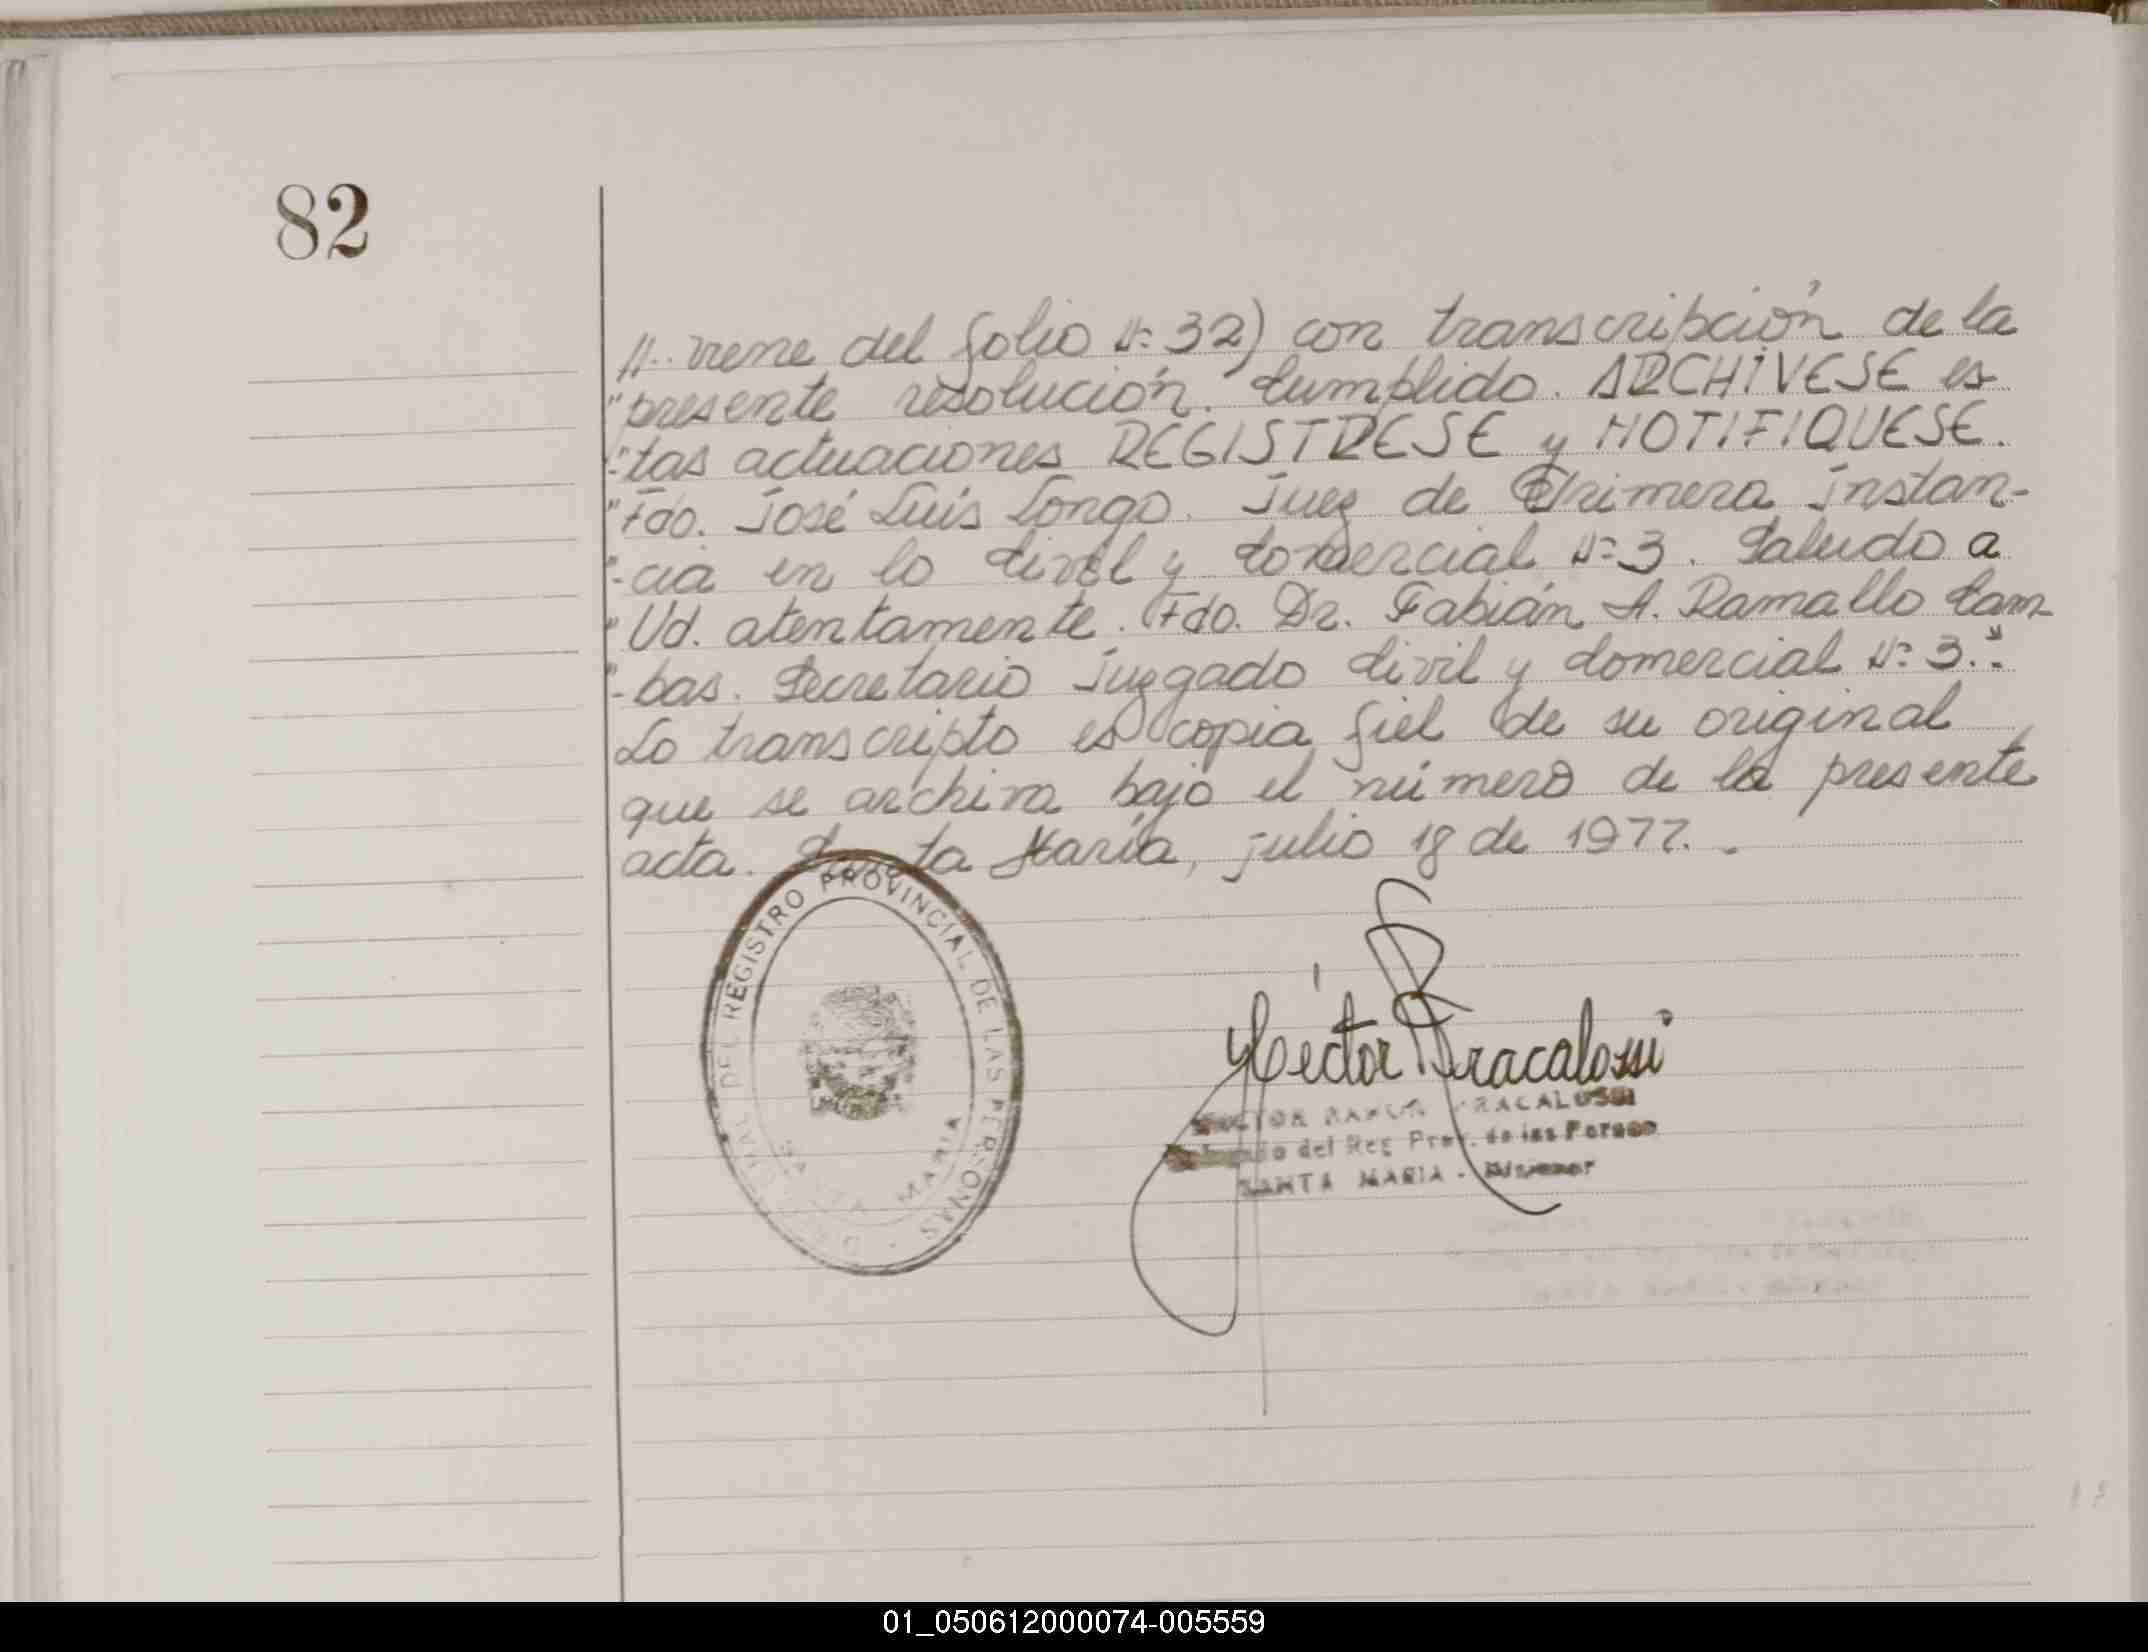 82
//.. viene del folio Nº 32) con transcripción de la
"presente resolución. Cumplido. ARCHIVESE es
"tas actuaciones REGISTRESE y NOTIFIQUESE.
"Fdo. José Luis Longo. Juez de Primera Instan-
"-cia en lo Civil y Comercial Nº 3. Saludo a
"Ud. atentamente. Fdo. Dr. Fabián A. Ramallo Cam
"-bas. Secretario Juzgado Civil y Comercial Nº 3."
Lo transcripto es copia fiel de su original
que se archiva bajo el número de la presente
acta. Santa María, julio 18 de 1977.
DEL REGISTRO PROVINCIAL DE LAS PERSONAS
SANTA MARIA
Héctor Bracalossi
HECTOR RAMON BRACALOSSI
del Reg Prov. de las Person
SANTA MARIA -
01_050612000074-005559